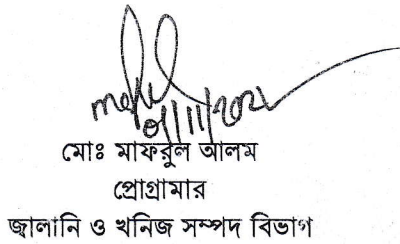 মোঃ মাফরুল আলম
প্রোগ্রামার
জ্বালানি ও খনিজ সম্পদ বিভাগ